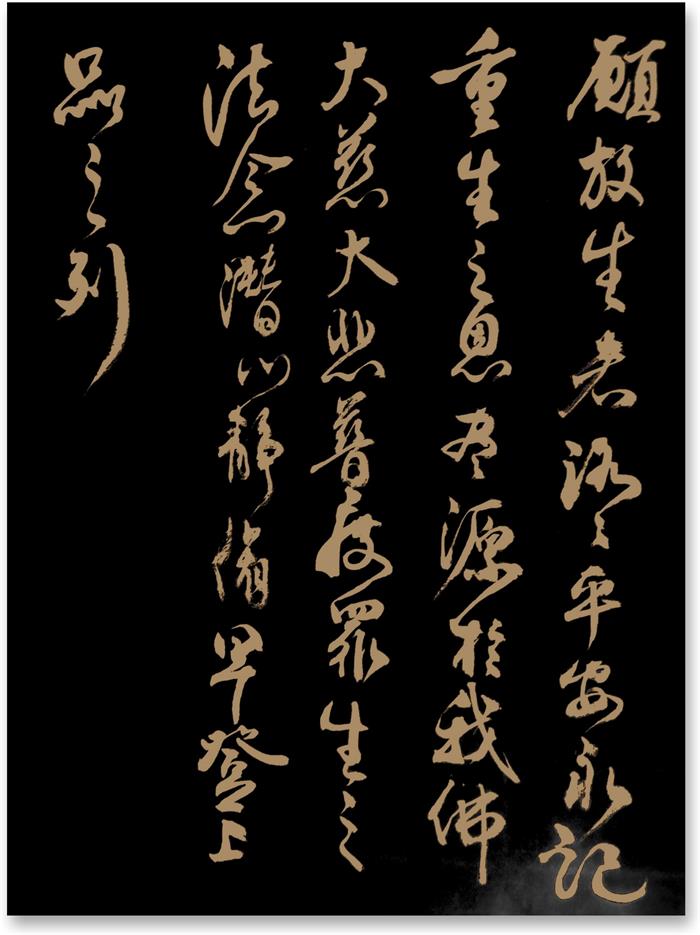 願放生者平安永記
重生之恩尽源於我佛
大慈大悲普度眾生之
法念潛心靜脩早登上
品之列